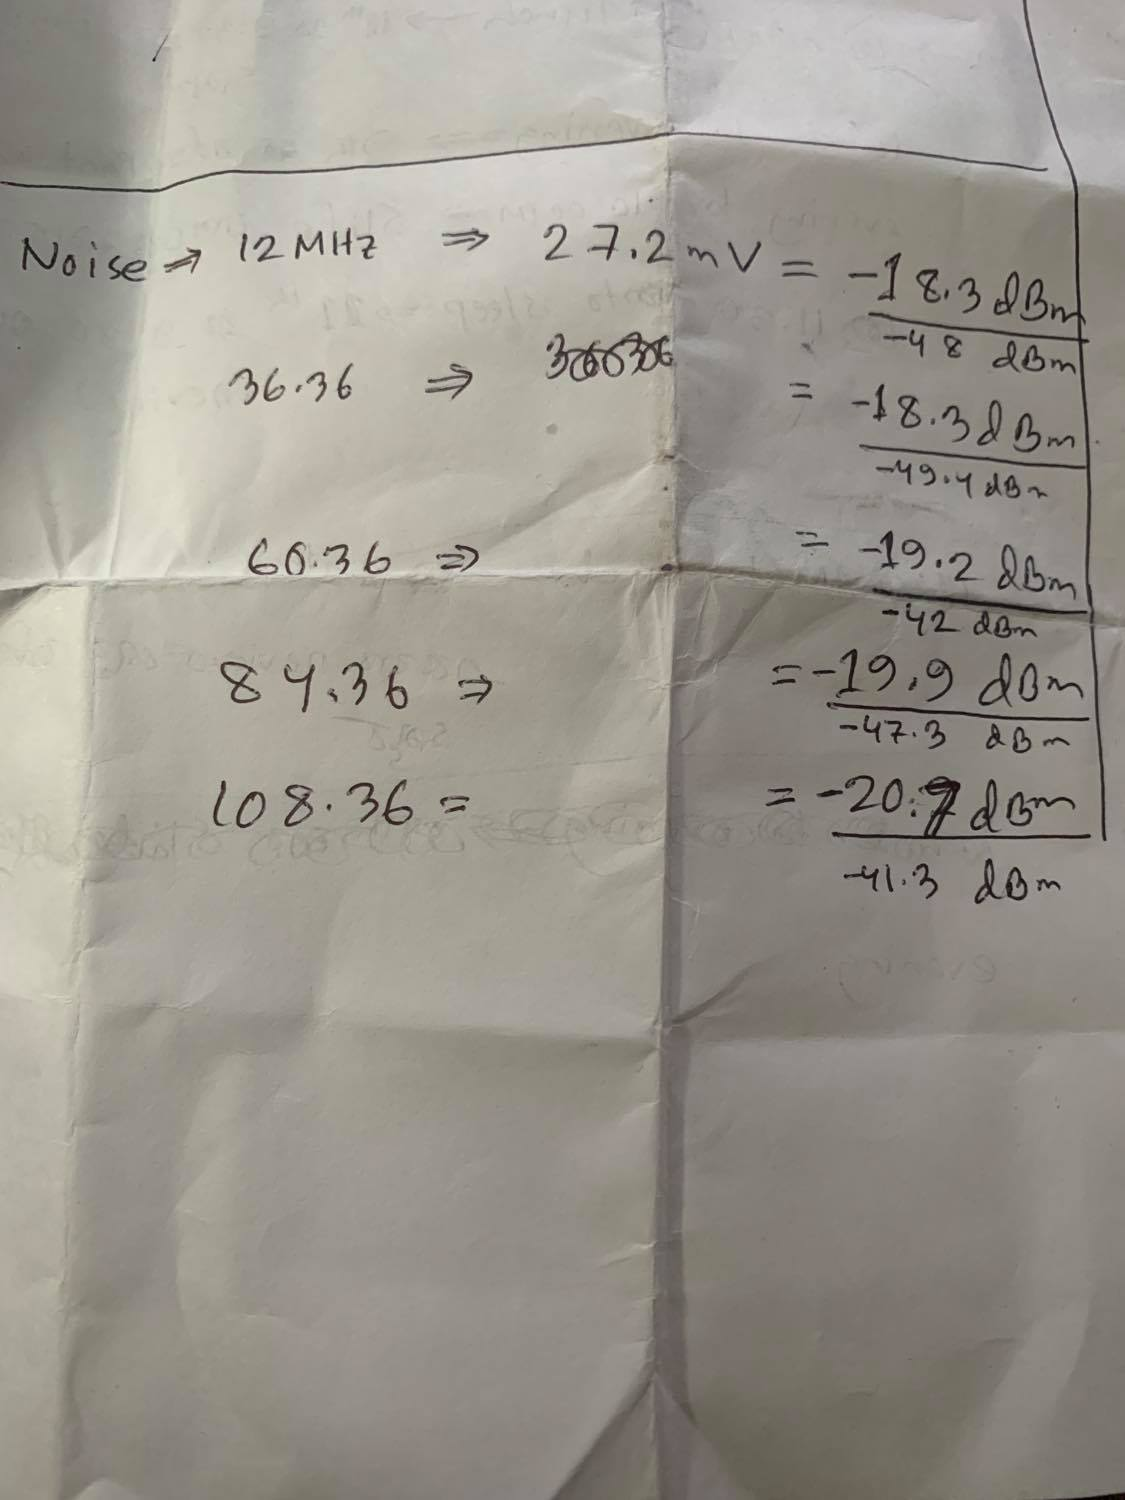 Noise → 12 MHz ⇒ 27.2 mV = -18.3 dBm
-48 dBm
36.36 ⇒ = -18.3 dBm
-49.4 dBm
60.36 ⇒ = -19.2 dBm
-42 dBm
84.36 ⇒ = -19.9 dBm
-47.3 dBm
108.36 = = -20. dBm
-41.3 dBm